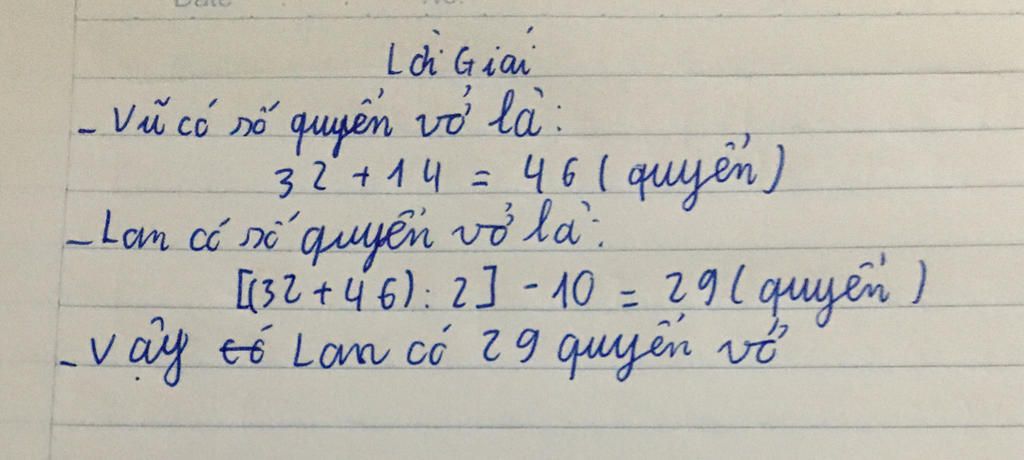 Lời Giải
- Vũ có số quyển vở là:
32 + 14 = 46 ( quyển )
- Lan có số quyển vở là:
[(32 + 46) : 2] - 10 = 29 ( quyển )
- Vậy có Lan có 29 quyển vở